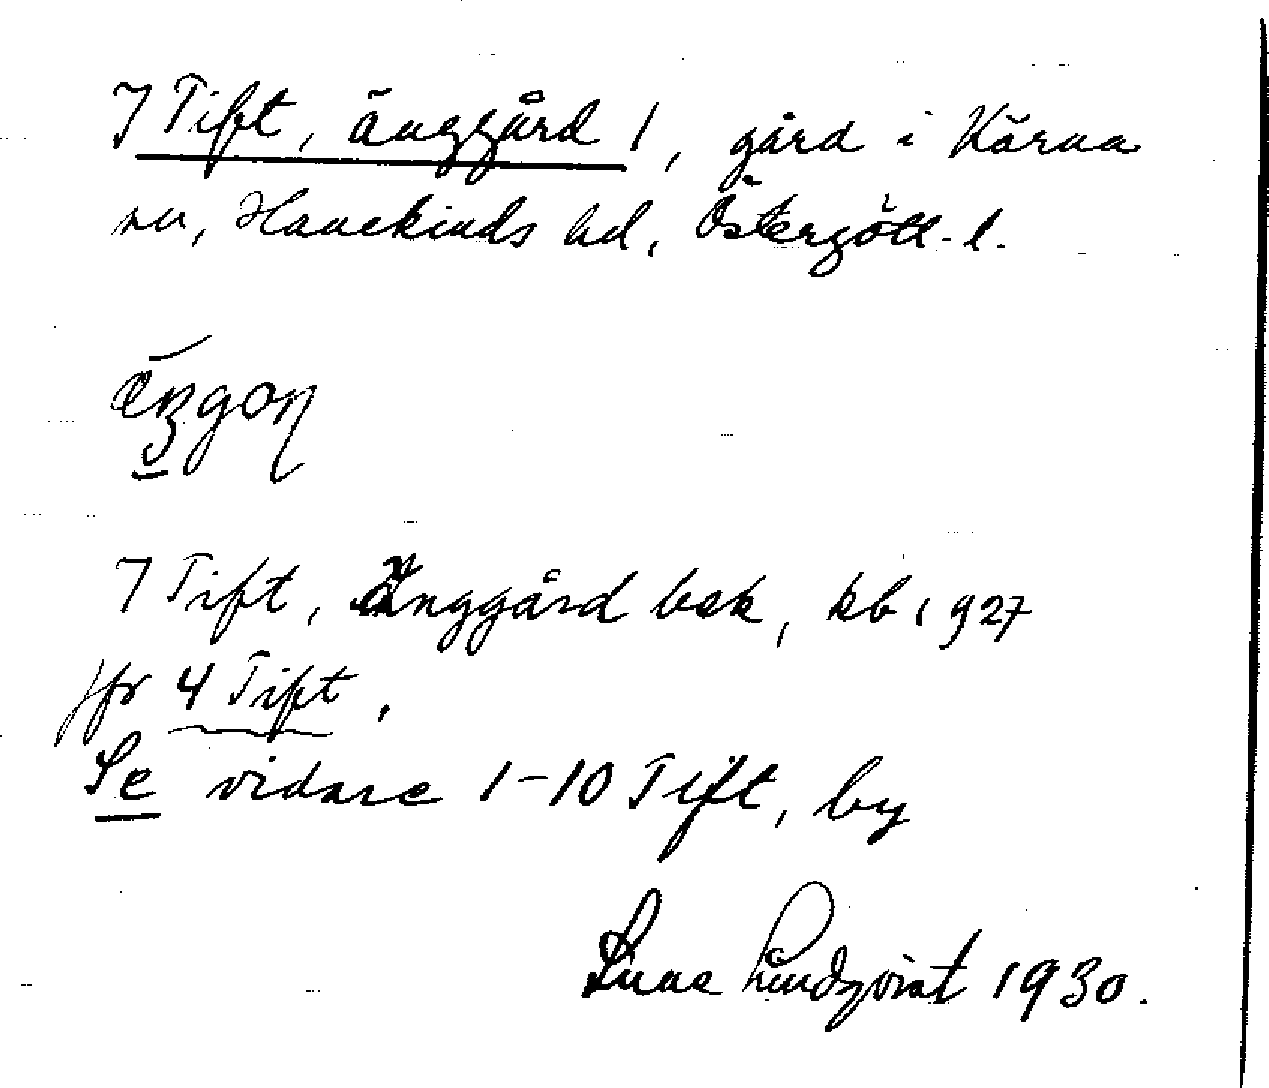 7 Tift, änggård 1, gård i Kärna
sn, Hanekinds hd, Östergötl. l.
7 Tift, Änggård bek, kb 1927
jfr 4 Tift.
Se vidare 1-10 Tift, by
Sune Lindqvist 1930.